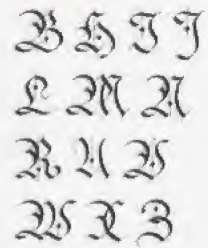 B H I J
L M N
R U V
W X Z